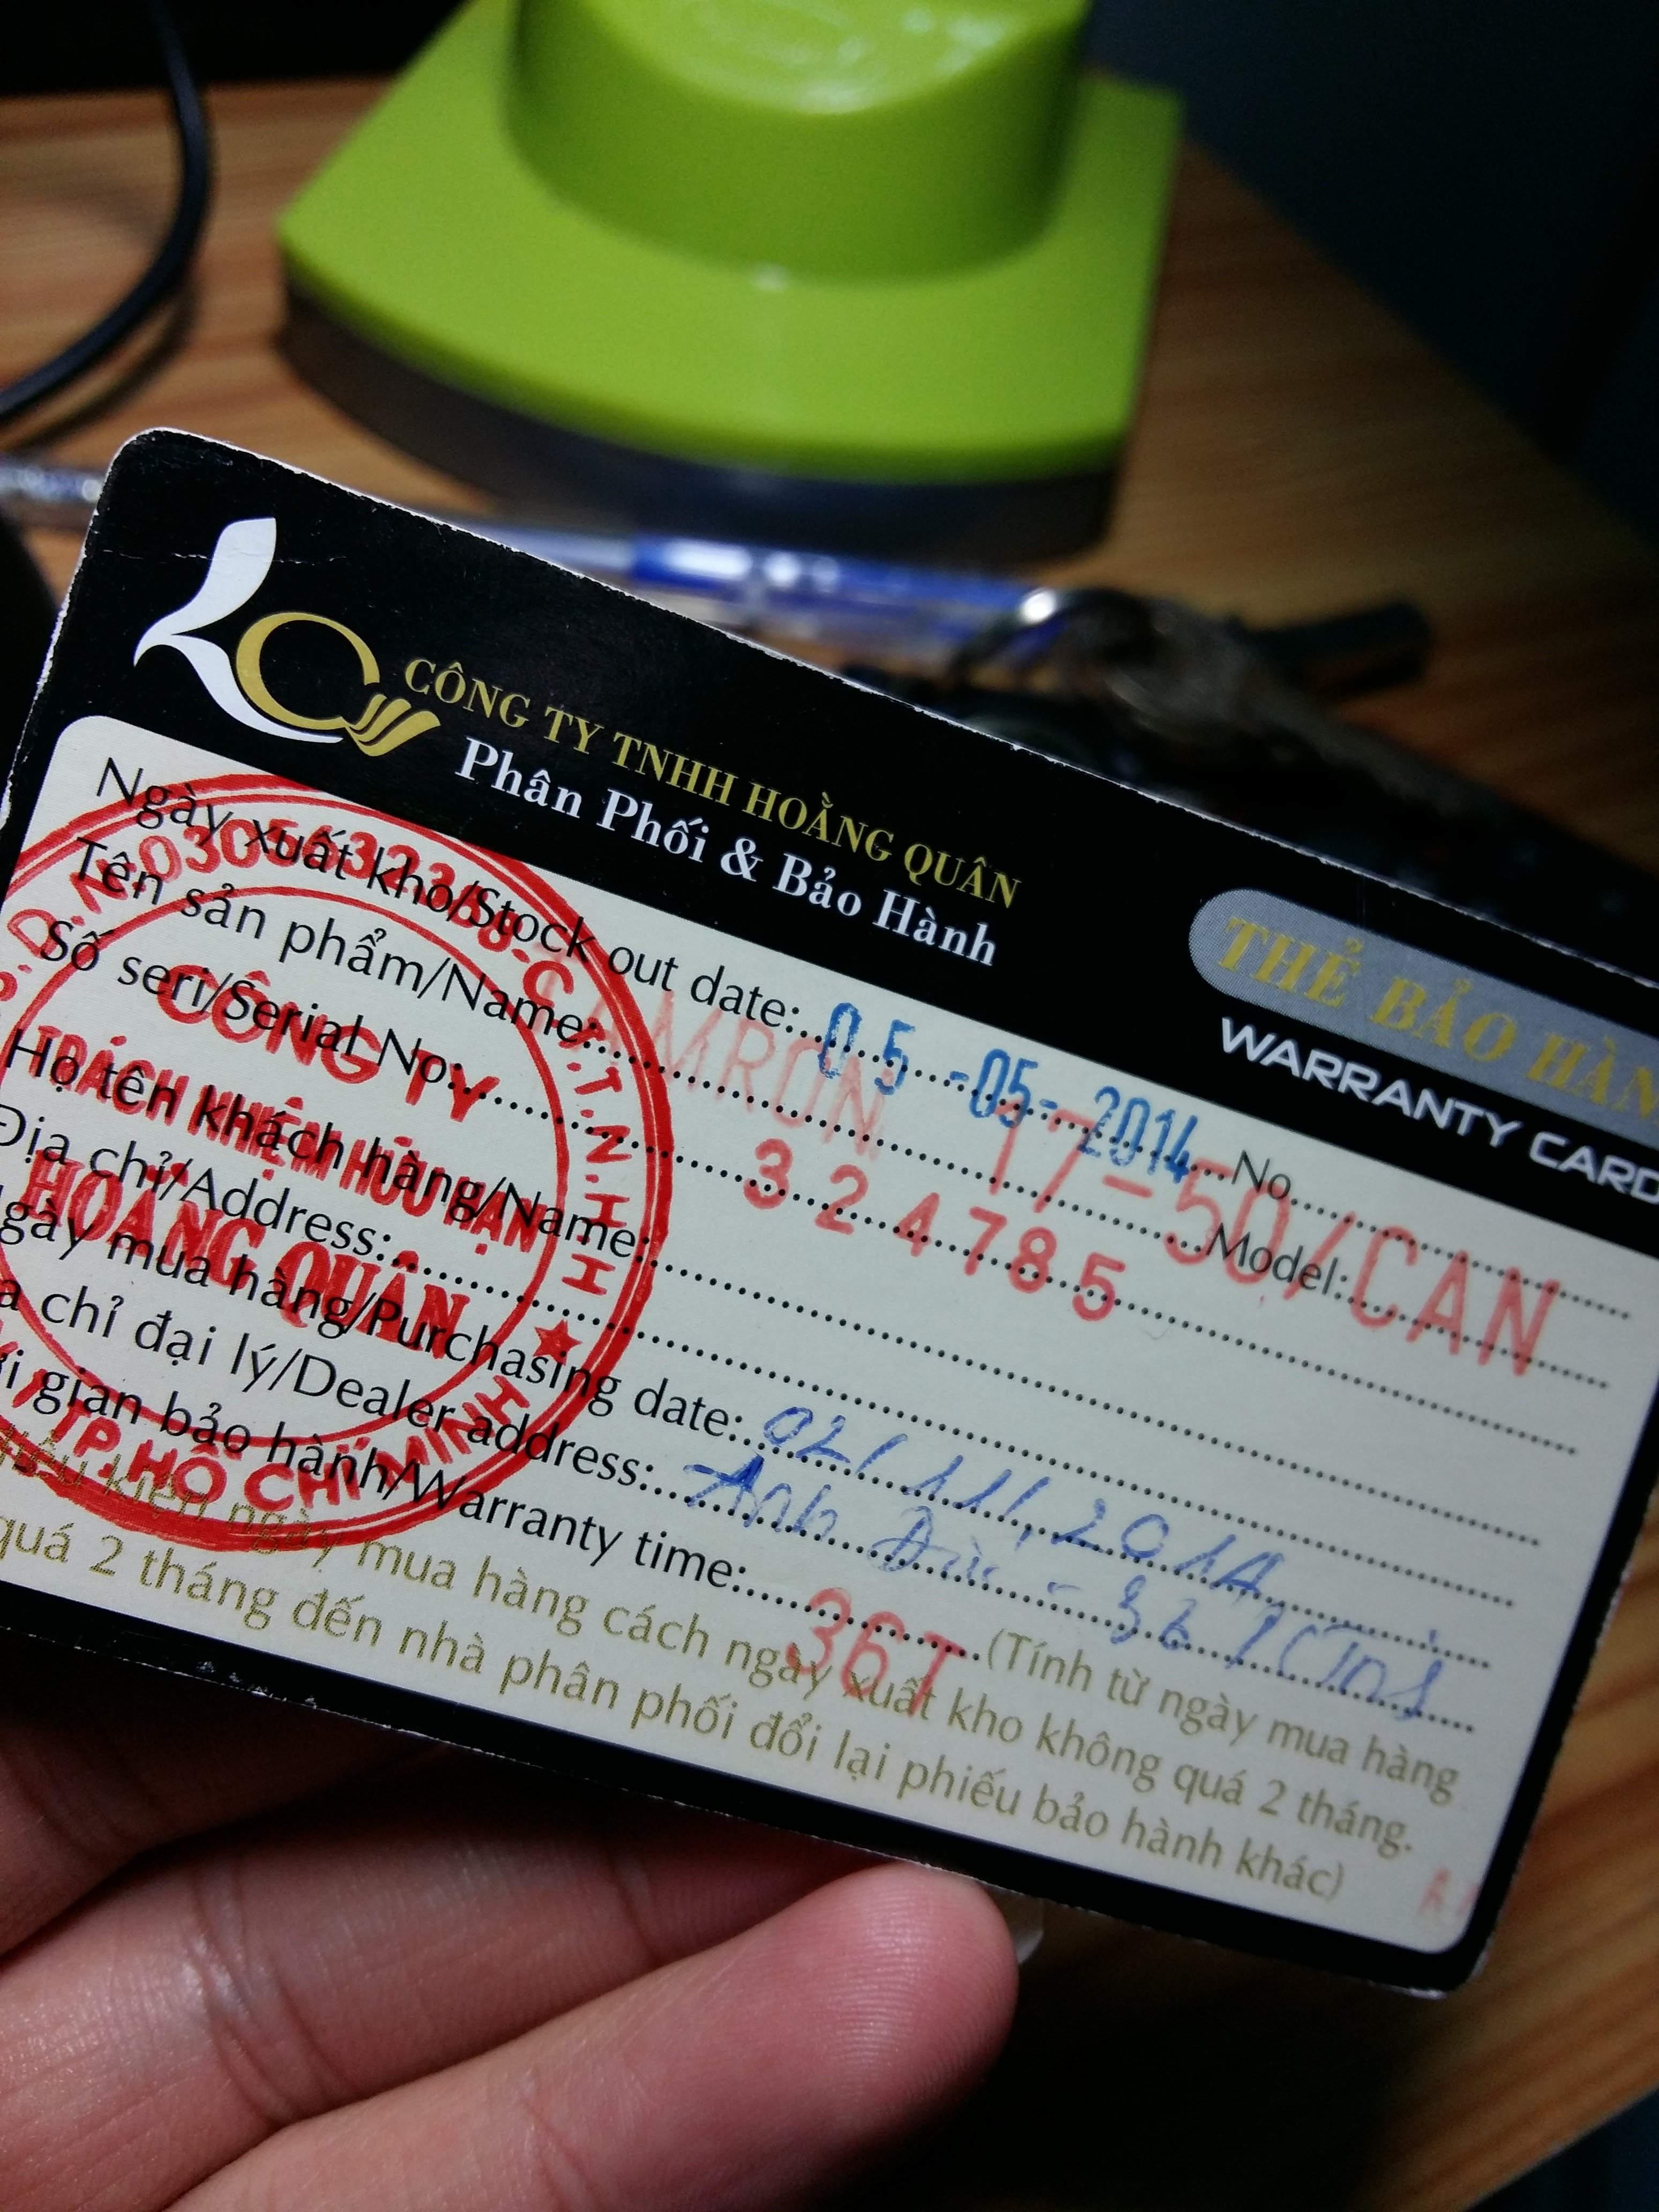 CÔNG TY TNHH HOẰNG QUÂN
Phân Phối & Bảo Hành
THẺ BẢO HÀN
WARRANTY CARD
Ngày xuất kho/Stock out date: 05-05-2014 No
Tên sản phẩm/Name: TAMRON 17-50/CAN Model:
Số seri/Serial No: 324785
Họ tên khách hàng/Name:
Địa chỉ/Address:
gày mua hàng/Purchasing date: 02/11/2014
a chỉ đại lý/Dealer address: Anh Đức - 36
i gian bảo hành/Warranty time: 36T (Tính từ ngày mua hàng
điều kiện ngày mua hàng cách ngày xuất kho không quá 2 tháng.
quá 2 tháng đến nhà phân phối đổi lại phiếu bảo hành khác)
CÔNG TY
TRÁCH NHIỆM HỮU HẠN
HOẰNG QUÂN
TP.HỒ CHÍ MINH
C.T.T.N.H.H